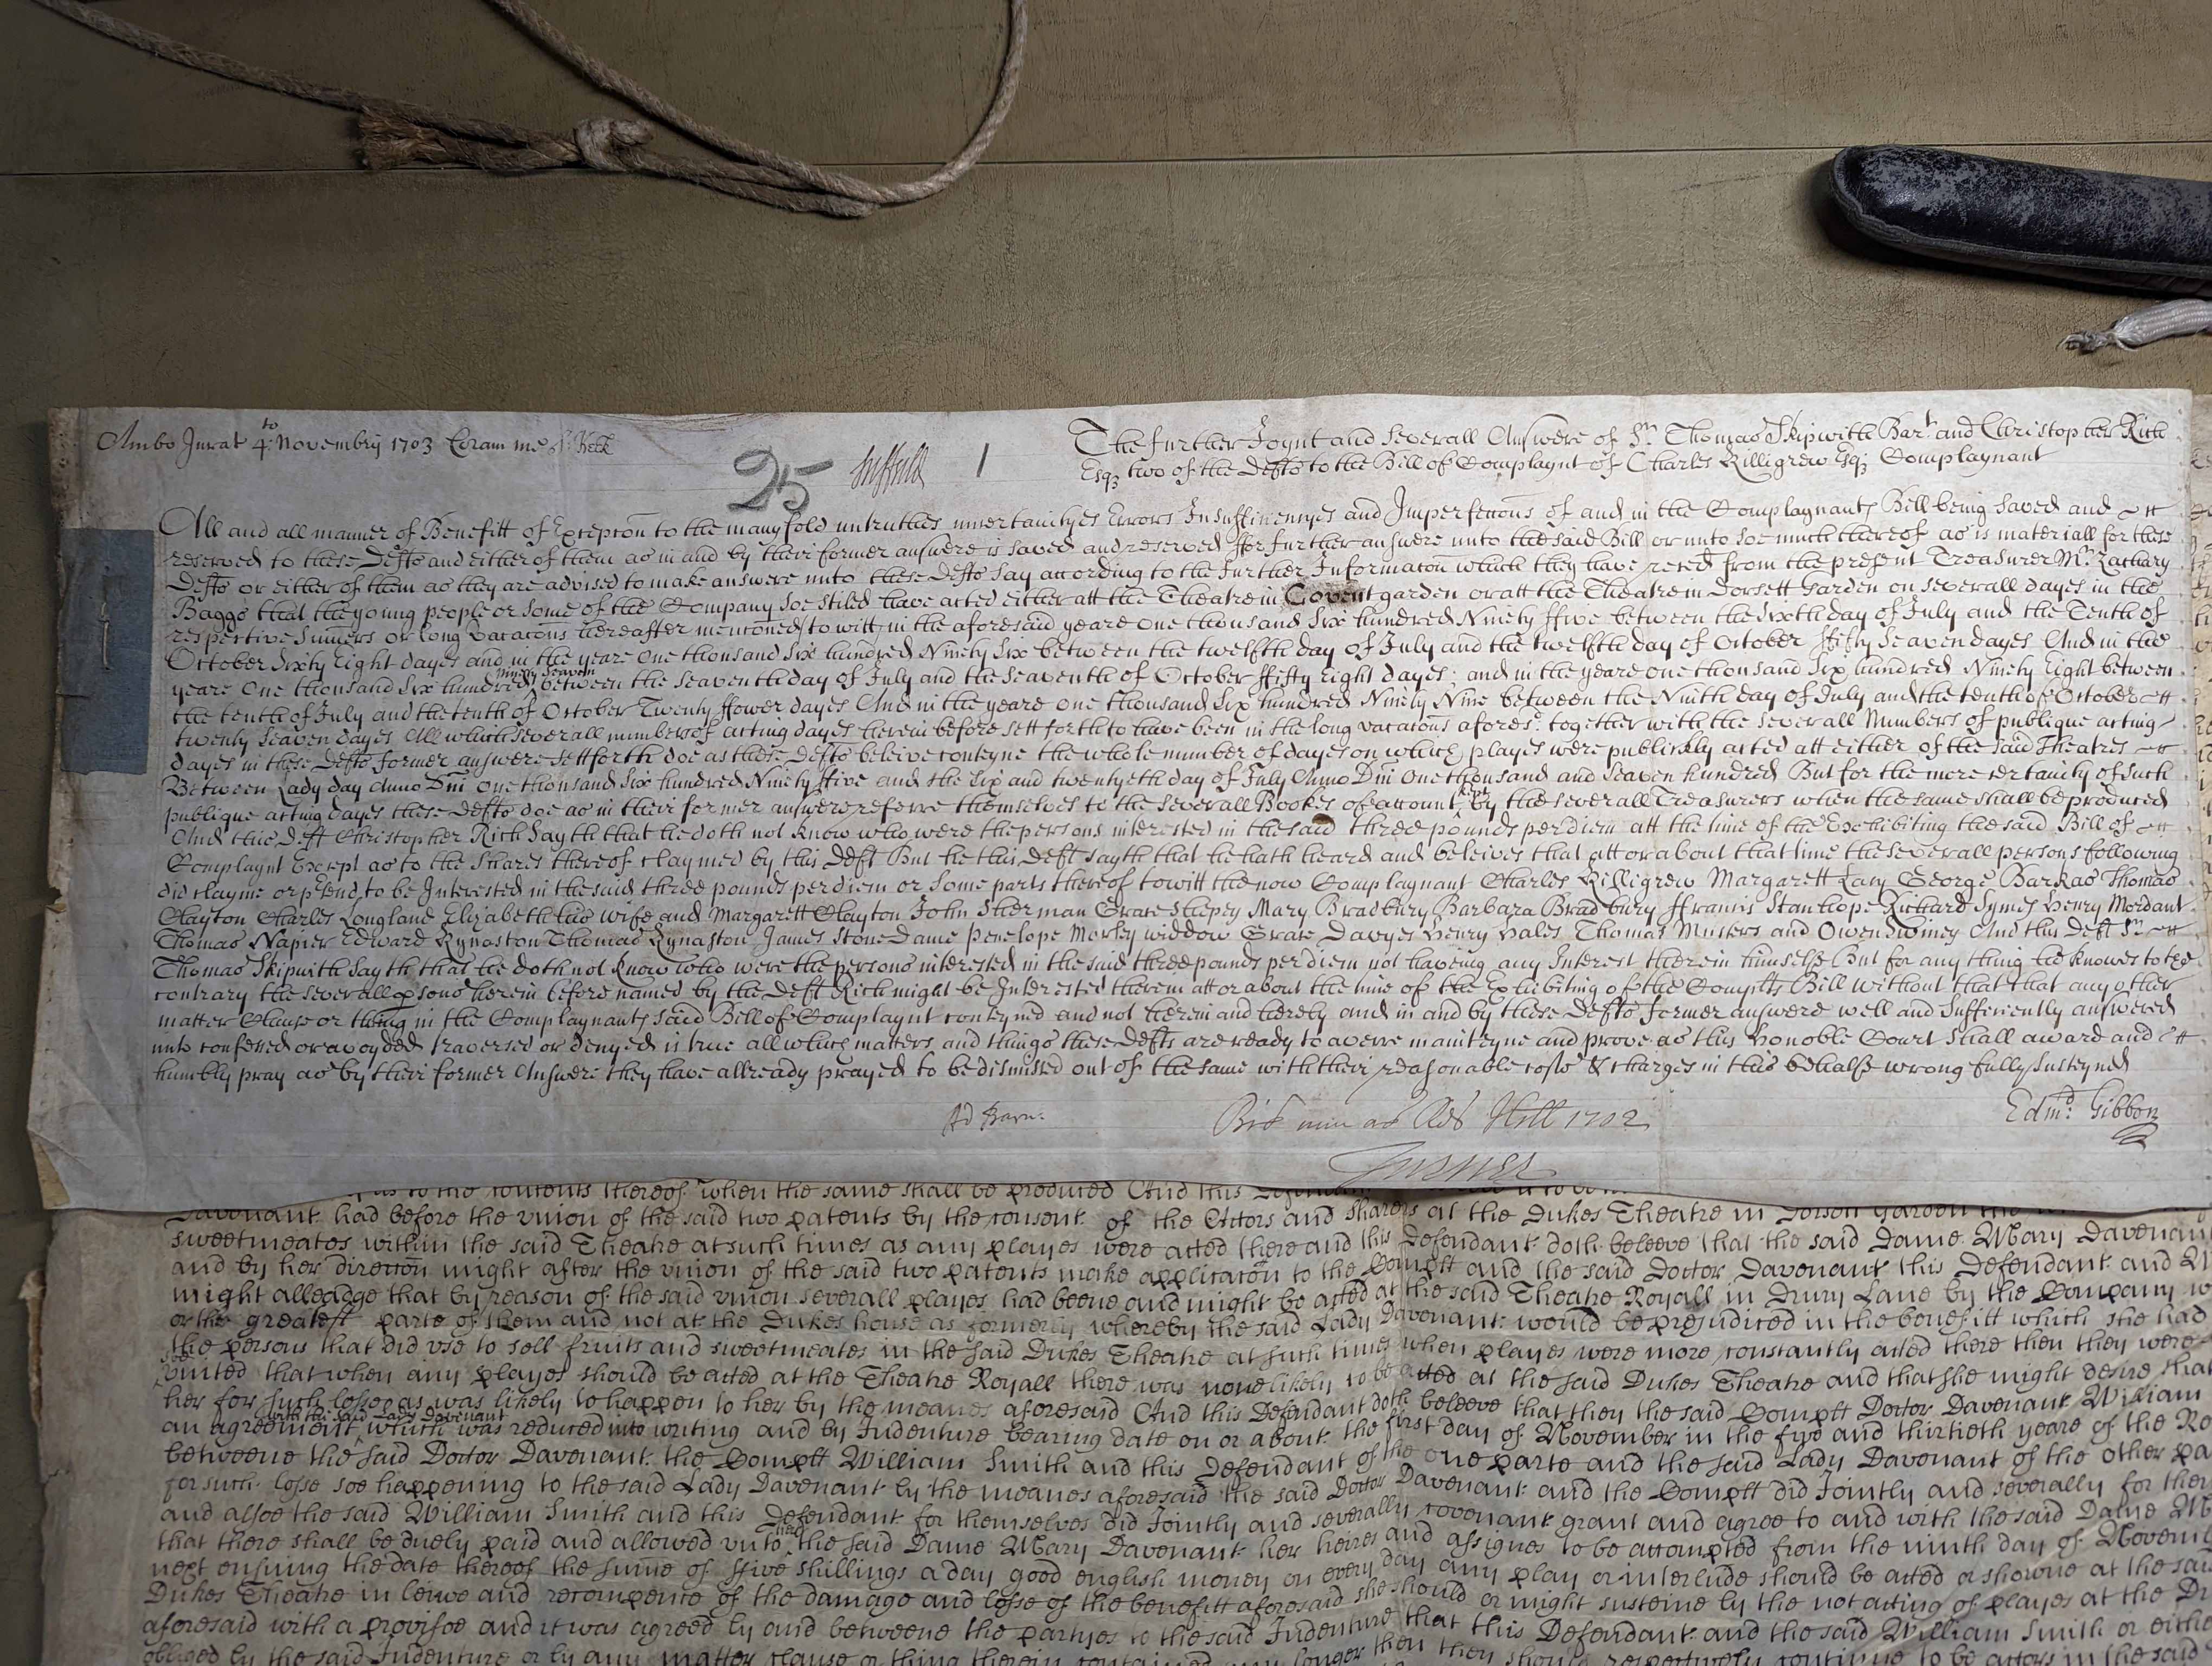 Ambo Jurat 4to Novembrij 1703 Coram me
25 Suffield 1
The further Joynt and severall Answere of Sr. Thomas Skipwith Bart. and Christopher Rich
Esqʒ two of the Defts to the Bill of Complaynt of Charles Killigrew Esqʒ Complaynant
All and all manner of Benefitt of Excepcon to the manyfold untruthes uncertaintyes Errors Insufficiencyes and Imperfeccons of and in the Complaynants Bill being saved and
reserved to these Defts and either of them as in and by their former answere is saved and reserved ffor further answere unto the said Bill or unto soe much thereof as is materiall for these
Defts or either of them as they are advised to make answere unto these Defts say according to the further Informacon which they have reced from the present Treasurer Mr. Zachary
Baggs that the young people or some of the Company soe stiled have acted either att the Theatre in Covent garden or att the Theatre in Dorsett Garden on severall dayes in the
respective Sumers or long vacacons hereafter menconed to witt in the aforesaid yeare One thousand Six hundred Ninety ffive between the Sixth day of July and the Tenth of
October Sixty Eight dayes and in the yeare One thousand Six hundred Ninety Six between the twelfth day of July and the twelfth day of October ffifty Seaven dayes And in the
yeare One thousand Six hundred Ninety Seaven between the Seaventh day of July and the Seaventh of October ffifty Eight dayes; and in the yeare one thousand Six hundred Ninety Eight between
the tenth of July and the tenth of October Twenty ffower dayes And in the yeare one thousand Six hundred Ninety Nine between the Ninth day of July and the tenth of October
twenty Seaven dayes All which severall numbers of acting dayes herein before sett forth to have been in the long vacacons aforesd. together with the severall Numbers of publique acting
dayes in these Defts former answere sett forth doe as these Defts beleive conteyne the whole number of dayes on which playes were publickly acted att either of the said Theatres
Between Lady day Anno Dni One thousand Six hundred Ninety ffive and the Six and twentyeth day of July Anno Dni One thousand and Seaven hundred But for the more certainty of such
publique acting dayes these Defts doe as in their former answere referre themselves to the severall Bookes of account kept by the severall Treasurers when the same shall be produced
And this Deft Christopher Rich sayth that he doth not know who were the persons interested in the said three pounds per diem att the time of the Exhibiting the said Bill of
Complaynt Except as to the Shares thereof claymed by this Deft But he this Deft sayth that he hath heard and beleives that att or about that time the severall persons following
did clayme or ptend to be Interested in the said three pounds per diem or some parts thereof to witt the now Complaynant Charles Killigrew Margarett Lacy George Barkas Thomas
Clayton Charles Longland Elizabeth his wife and Margarett Clayton John Sherman Grace Shepey Mary Bradbury Barbara Bradbury ffrancis Stanhope Richard Symes Henry Mordant
Thomas Napier Edward Kynaston Thomas Kynaston James Stone Dame Penelope Morley widdow Grace Davyes Henry Hales Thomas Musters and Owen Swiney And this Deft Sr.
Thomas Skipwith sayth that he doth not know who were the persons interested in the said three pounds per diem not haveing any Interest therein himselfe But for any thing he knowes to the
contrary the severall psons herein before named by the Deft Rich might be Interested therein att or about the time of the Exhibiting of the Complts Bill without that that any other
matter Clause or thing in the Complaynants said Bill of Complaynt conteyned and not herein and hereby and in and by these Defts former answere well and Sufficiently answered
unto confessed or avoyded traversed or denyed is true all which matters and things these Defts are ready to averre mainteyne and prove as this honoble Court shall award and
humbly pray as by their former Answere they have allready prayed to be dismissed out of the same with their reasonable costs & charges in this behalfe wrong fully susteyned
Edmd: Gibbon
1702
to the contents thereof when the same shall be produced And this
Davenant had before the union of the said two patents by the consent of the Actors and sharers at the Dukes Theatre in Dorsett Garden
sweetmeates within the said Theatre at such times as any playes were acted there and this Defendant doth beleeve that the said Dame Mary Davenant
and by her direccon might after the union of the said two patents make applicacon to the Complt and the said Doctor Davenant this Defendant and
might alleadge that by reason of the said union severall playes had beene and might be acted at the said Theatre Royall in Drury Lane by the Company
or the greatest parte of them and not at the Dukes house as formerly whereby the said Lady Davenant would be prejudiced in the benefitt which she had
the persons that did use to sell fruits and sweetmeates in the said Dukes Theatre at such times when playes were more constantly acted there then they were
united that when any playes should be acted at the Theatre Royall there was none likely to be acted at the said Dukes Theatre and that she might desire that
her for such losse as was likely to happen to her by the meanes aforesaid And this Defendant doth beleeve that they the said Complt Doctor Davenant William
an agreement with the said Lady Davenant which was reduced into writing and by Indenture bearing date on or about the first day of November in the five and thirtieth yeare of the
betweene the said Doctor Davenant the Complt William Smith and this Defendant of the one parte and the said Lady Davenant of the other
for such losse soe happening to the said Lady Davenant by the meanes aforesaid the said Doctor Davenant and the Complt did Joyntly and severally for
and alsoe the said William Smith and this Defendant for themselves did Joyntly and severally covenant grant and agree to and with the said Dame
that there shall be duely paid and allowed unto the said Dame Mary Davenant her heires and assignes to be accompted from the ninth day of
next ensuing the date thereof the sume of ffive shillings a day good english money on every day any play or interlude should be acted or showne at the said
Dukes Theatre in leiwe and recompence of the damage and losse of the benefitt aforesaid she should or might susteine by the not acting of playes at the
aforesaid with a provisoe and it was agreed by and betweene the partyes to the said Indenture that this Defendant and the said William Smith or
obliged by the said Indenture or by any matter clause or thing therein longer then they should respectively continue to be actors in the said